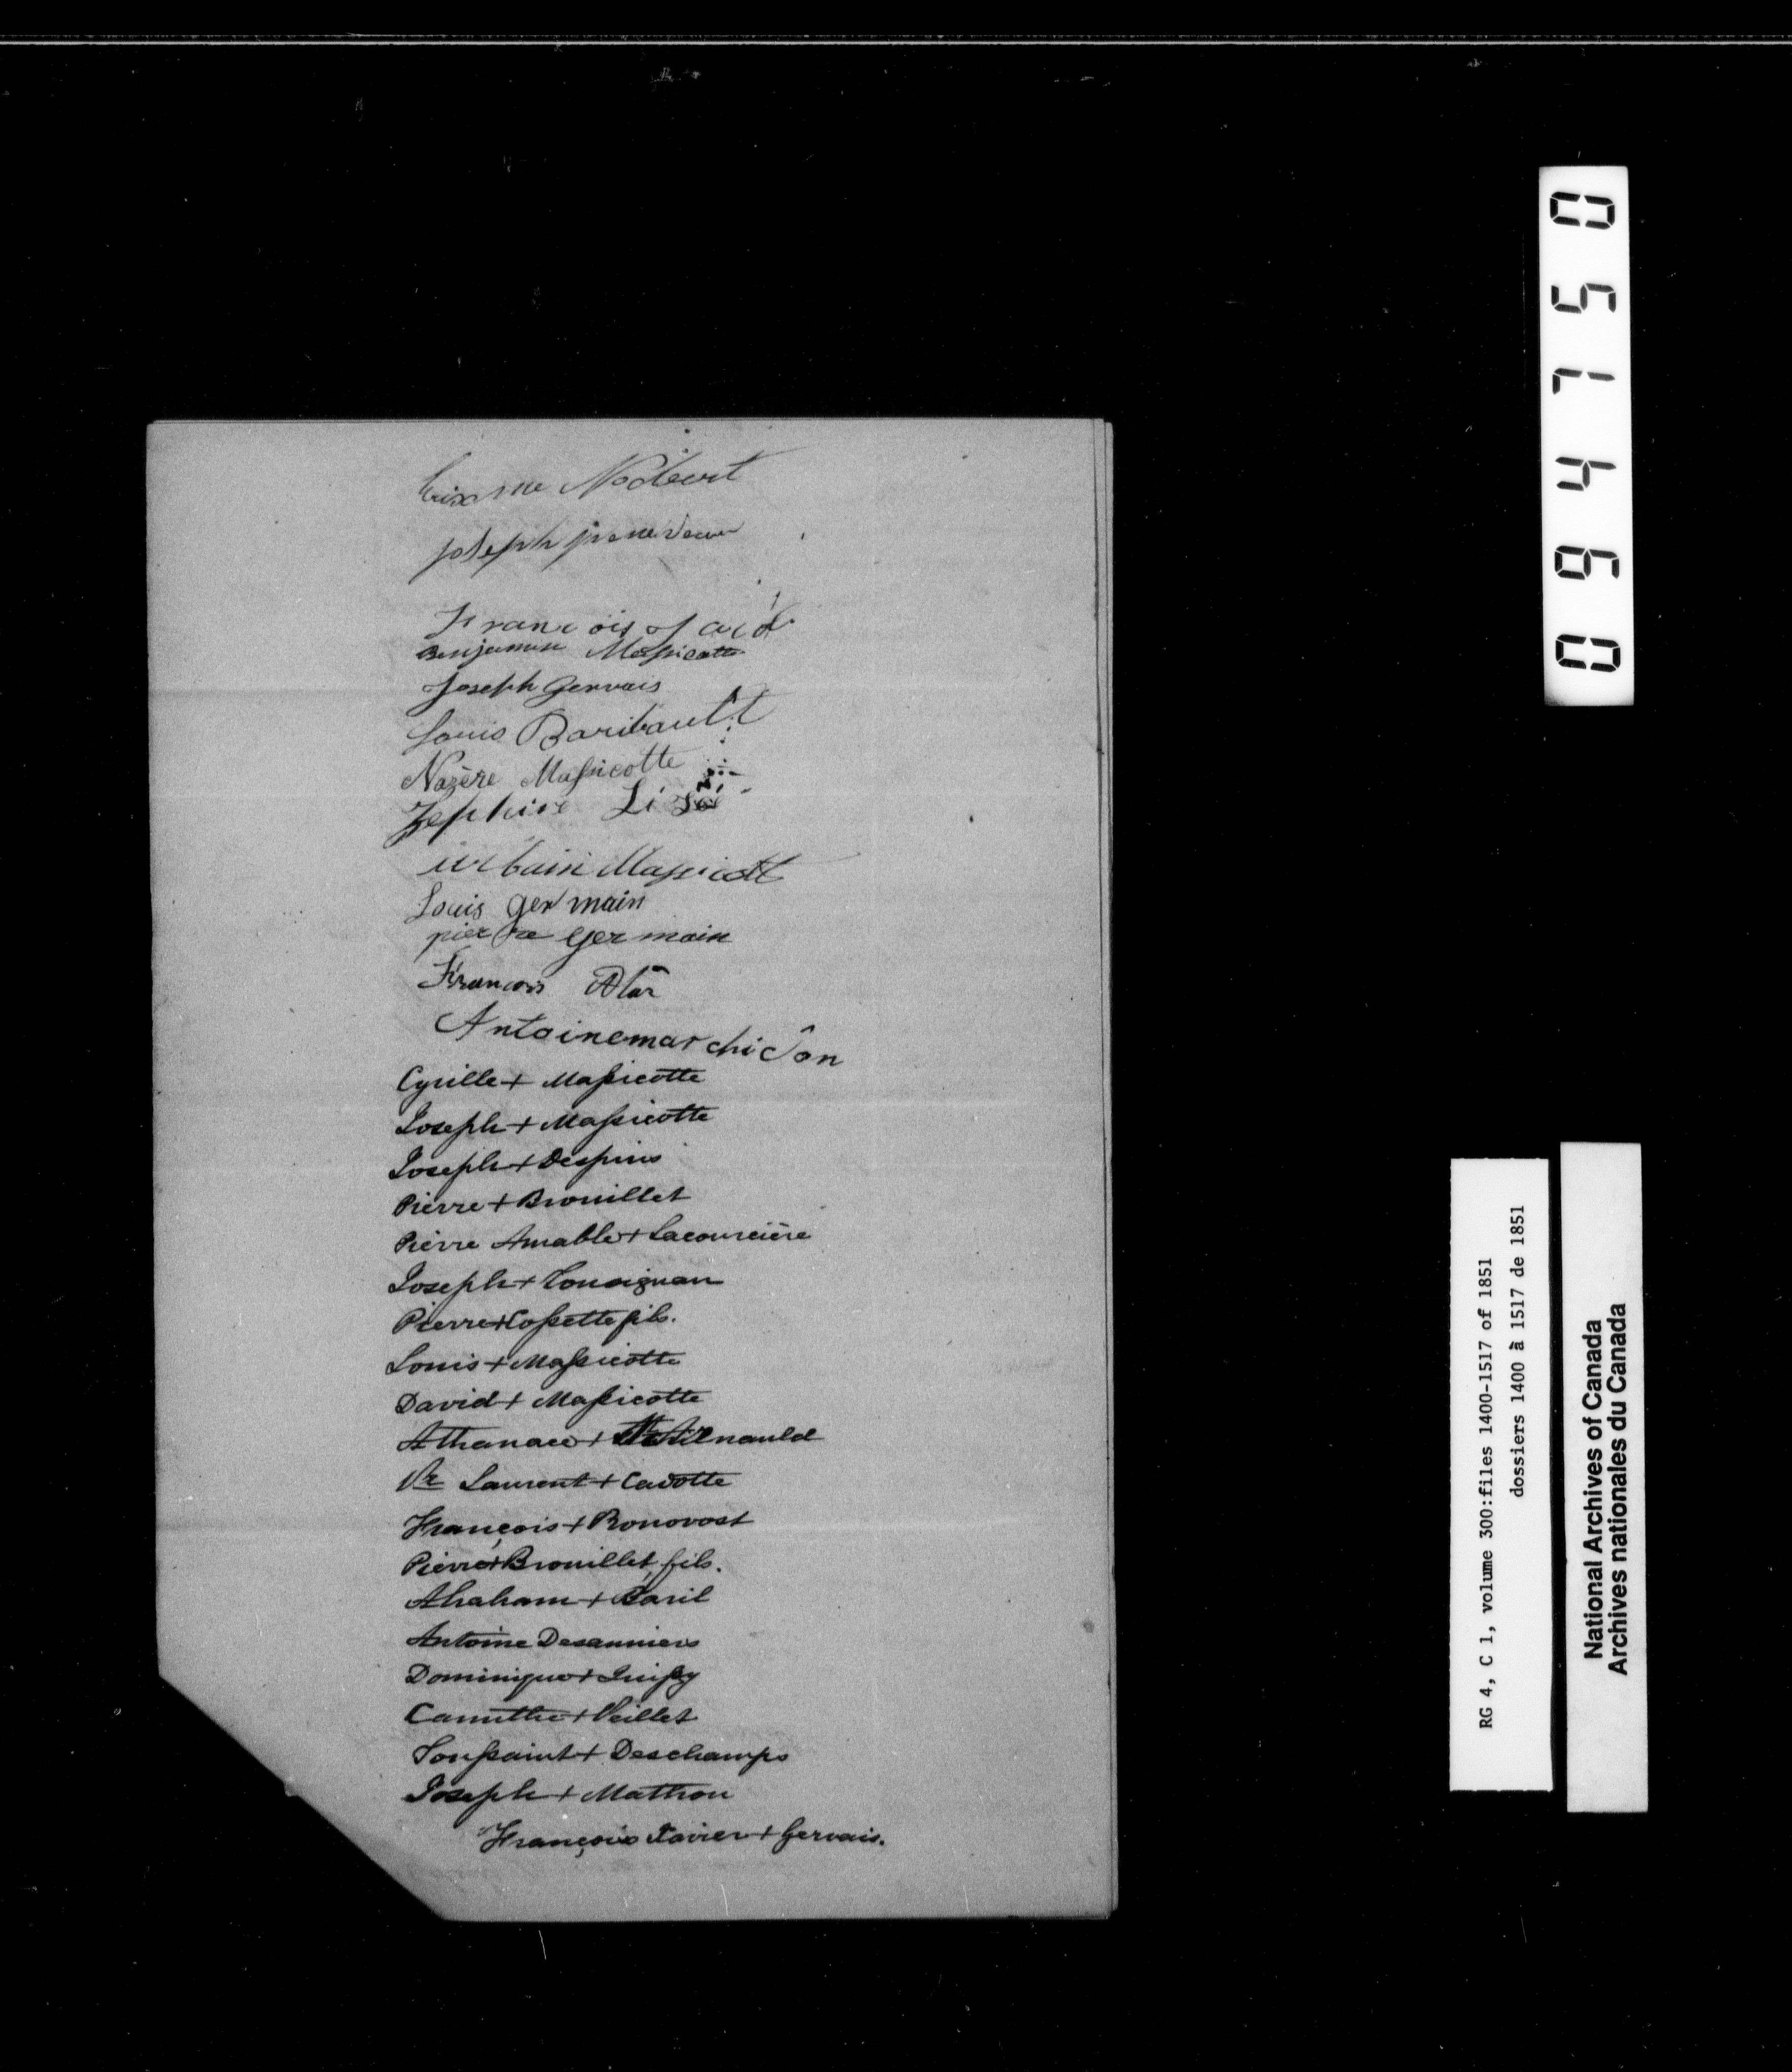 Joseph
Benjamin Massicotte
Joseph Gervais
Louis Baribault
Nazère Massicotte
urbain Massicott
Louis germain
pierre germain
Francois
Antoine marchi
Cyrille + Massicotte
Joseph + Massicotte
Joseph + Despins
Pierre + Brouillet
Pierre Amable + Lacourcière
Joseph + Tousignan
Pierre + Cossette fils.
Louis + Massicotte
David + Massicotte
Athanace +
Laurent + Cadotte
François + Ronovost
Pierre + Brouillet, fils.
Abraham + Baril
Antoine Desaunniers
Dominique +
+ Veillet
Toussaint + Deschamps
Joseph + Mathon
François Xavier + Gervais.
094750
RG 4, C 1, volume 300:files 1400-1517 of 1851
dossiers 1400 à 1517 de 1851
National Archives of Canada
Archives nationales du Canada